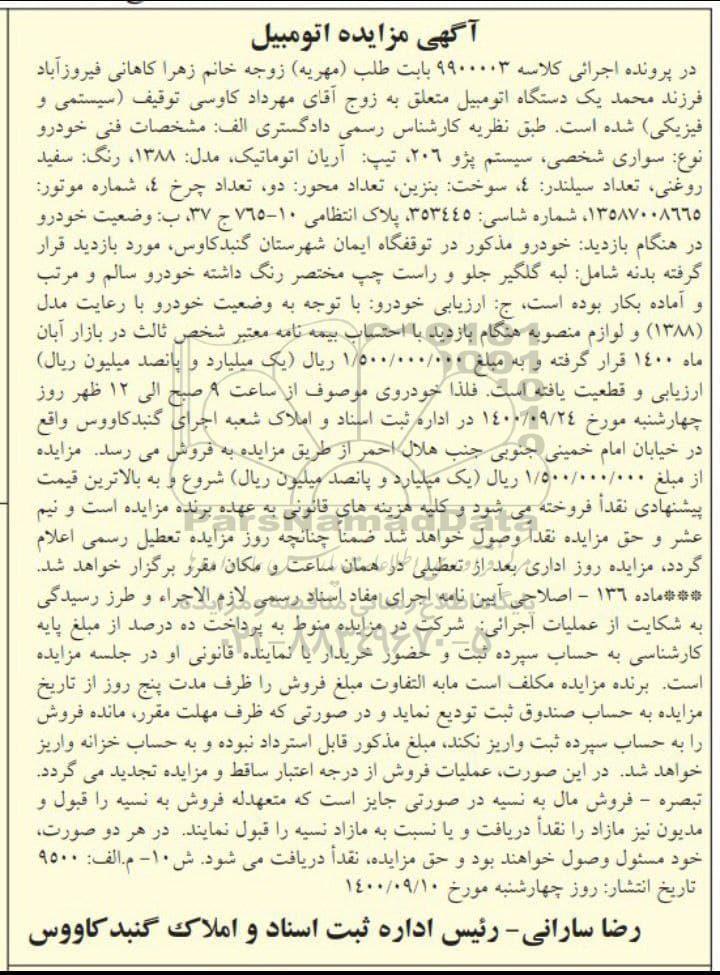 آگهی مزایده اتومبیل
در پرونده اجرائی کلاسه ۹۹۰۰۰۰۳ بابت طلب (مهریه) زوجه خانم زهرا کاهانی فیروزآباد
فرزند محمد یک دستگاه اتومبیل متعلق به زوج آقای مهرداد کاوسی توقیف (سیستمی و
فیزیکی) شده است. طبق نظریه کارشناس رسمی دادگستری الف: مشخصات فنی خودرو
نوع: سواری شخصی، سیستم پژو ۲۰۶، تیپ: آریان اتوماتیک، مدل: ۱۳۸۸، رنگ: سفید
روغنی، تعداد سیلندر: ٤، سوخت: بنزین، تعداد محور: دو، تعداد چرخ ٤، شماره موتور:
۱۳۵۸۷۰۰۸٦٦۵، شماره شاسی: ۳۵۳٤٤۵، پلاک انتظامی ۱۰-۷٦۵ ج ۳۷، ب: وضعیت خودرو
در هنگام بازدید: خودرو مذکور در توقفگاه ایمان شهرستان گنبدکاوس، مورد بازدید قرار
گرفته بدنه شامل: لبه گلگیر جلو و راست چپ مختصر رنگ داشته خودرو سالم و مرتب
و آماده بکار بوده است، ج: ارزیابی خودرو: با توجه به وضعیت خودرو با رعایت مدل
(۱۳۸۸) و لوازم منصوبه هنگام بازدید با احتساب بیمه نامه معتبر شخص ثالث در بازار آبان
ماه ۱٤۰۰ قرار گرفته و به مبلغ ۱/۵۰۰/۰۰۰/۰۰۰ ریال (یک میلیارد و پانصد میلیون ریال)
ارزیابی و قطعیت یافته است. فلذا خودروی موصوف از ساعت ۹ صبح الی ۱۲ ظهر روز
چهارشنبه مورخ ۱٤۰۰/۰۹/۲٤ در اداره ثبت اسناد و املاک شعبه اجرای گنبدکاووس واقع
در خیابان امام خمینی جنوبی جنب هلال احمر از طریق مزایده به فروش می رسد. مزایده
از مبلغ ۱/۵۰۰/۰۰۰/۰۰۰ ریال (یک میلیارد و پانصد میلیون ریال) شروع و به بالاترین قیمت
پیشنهادی نقداً فروخته می شود و کلیه هزینه های قانونی به عهده برنده مزایده است و نیم
عشر و حق مزایده نقداً وصول خواهد شد ضمناً چنانچه روز مزایده تعطیل رسمی اعلام
گردد، مزایده روز اداری بعد از تعطیلی در همان ساعت و مکان مقرر برگزار خواهد شد.
***ماده ۱۳٦ - اصلاحی آیین نامه اجرای مفاد اسناد رسمی لازم الاجراء و طرز رسیدگی
به شکایت از عملیات اجرائی: شرکت در مزایده منوط به پرداخت ده درصد از مبلغ پایه
کارشناسی به حساب سپرده ثبت و حضور خریدار یا نماینده قانونی او در جلسه مزایده
است. برنده مزایده مکلف است مابه التفاوت مبلغ فروش را ظرف مدت پنج روز از تاریخ
مزایده به حساب صندوق ثبت تودیع نماید و در صورتی که ظرف مهلت مقرر، مانده فروش
را به حساب سپرده ثبت واریز نکند، مبلغ مذکور قابل استرداد نبوده و به حساب خزانه واریز
خواهد شد. در این صورت، عملیات فروش از درجه اعتبار ساقط و مزایده تجدید می گردد.
تبصره - فروش مال به نسیه در صورتی جایز است که متعهدله فروش به نسیه را قبول و
مدیون نیز مازاد را نقداً دریافت و یا نسبت به مازاد نسیه را قبول نمایند. در هر دو صورت،
خود مسئول وصول خواهند بود و حق مزایده، نقداً دریافت می شود. ش۱۰- م.الف: ۹۵۰۰
تاریخ انتشار: روز چهارشنبه مورخ ۱٤۰۰/۰۹/۱۰
رضا سارانی- رئیس اداره ثبت اسناد و املاک گنبدکاووس
ParsNamadData
پایگاه اطلاع رسانی مناقصه و مزایده
۰۲۱-۸۸۳٤۹٦۷۰-۵